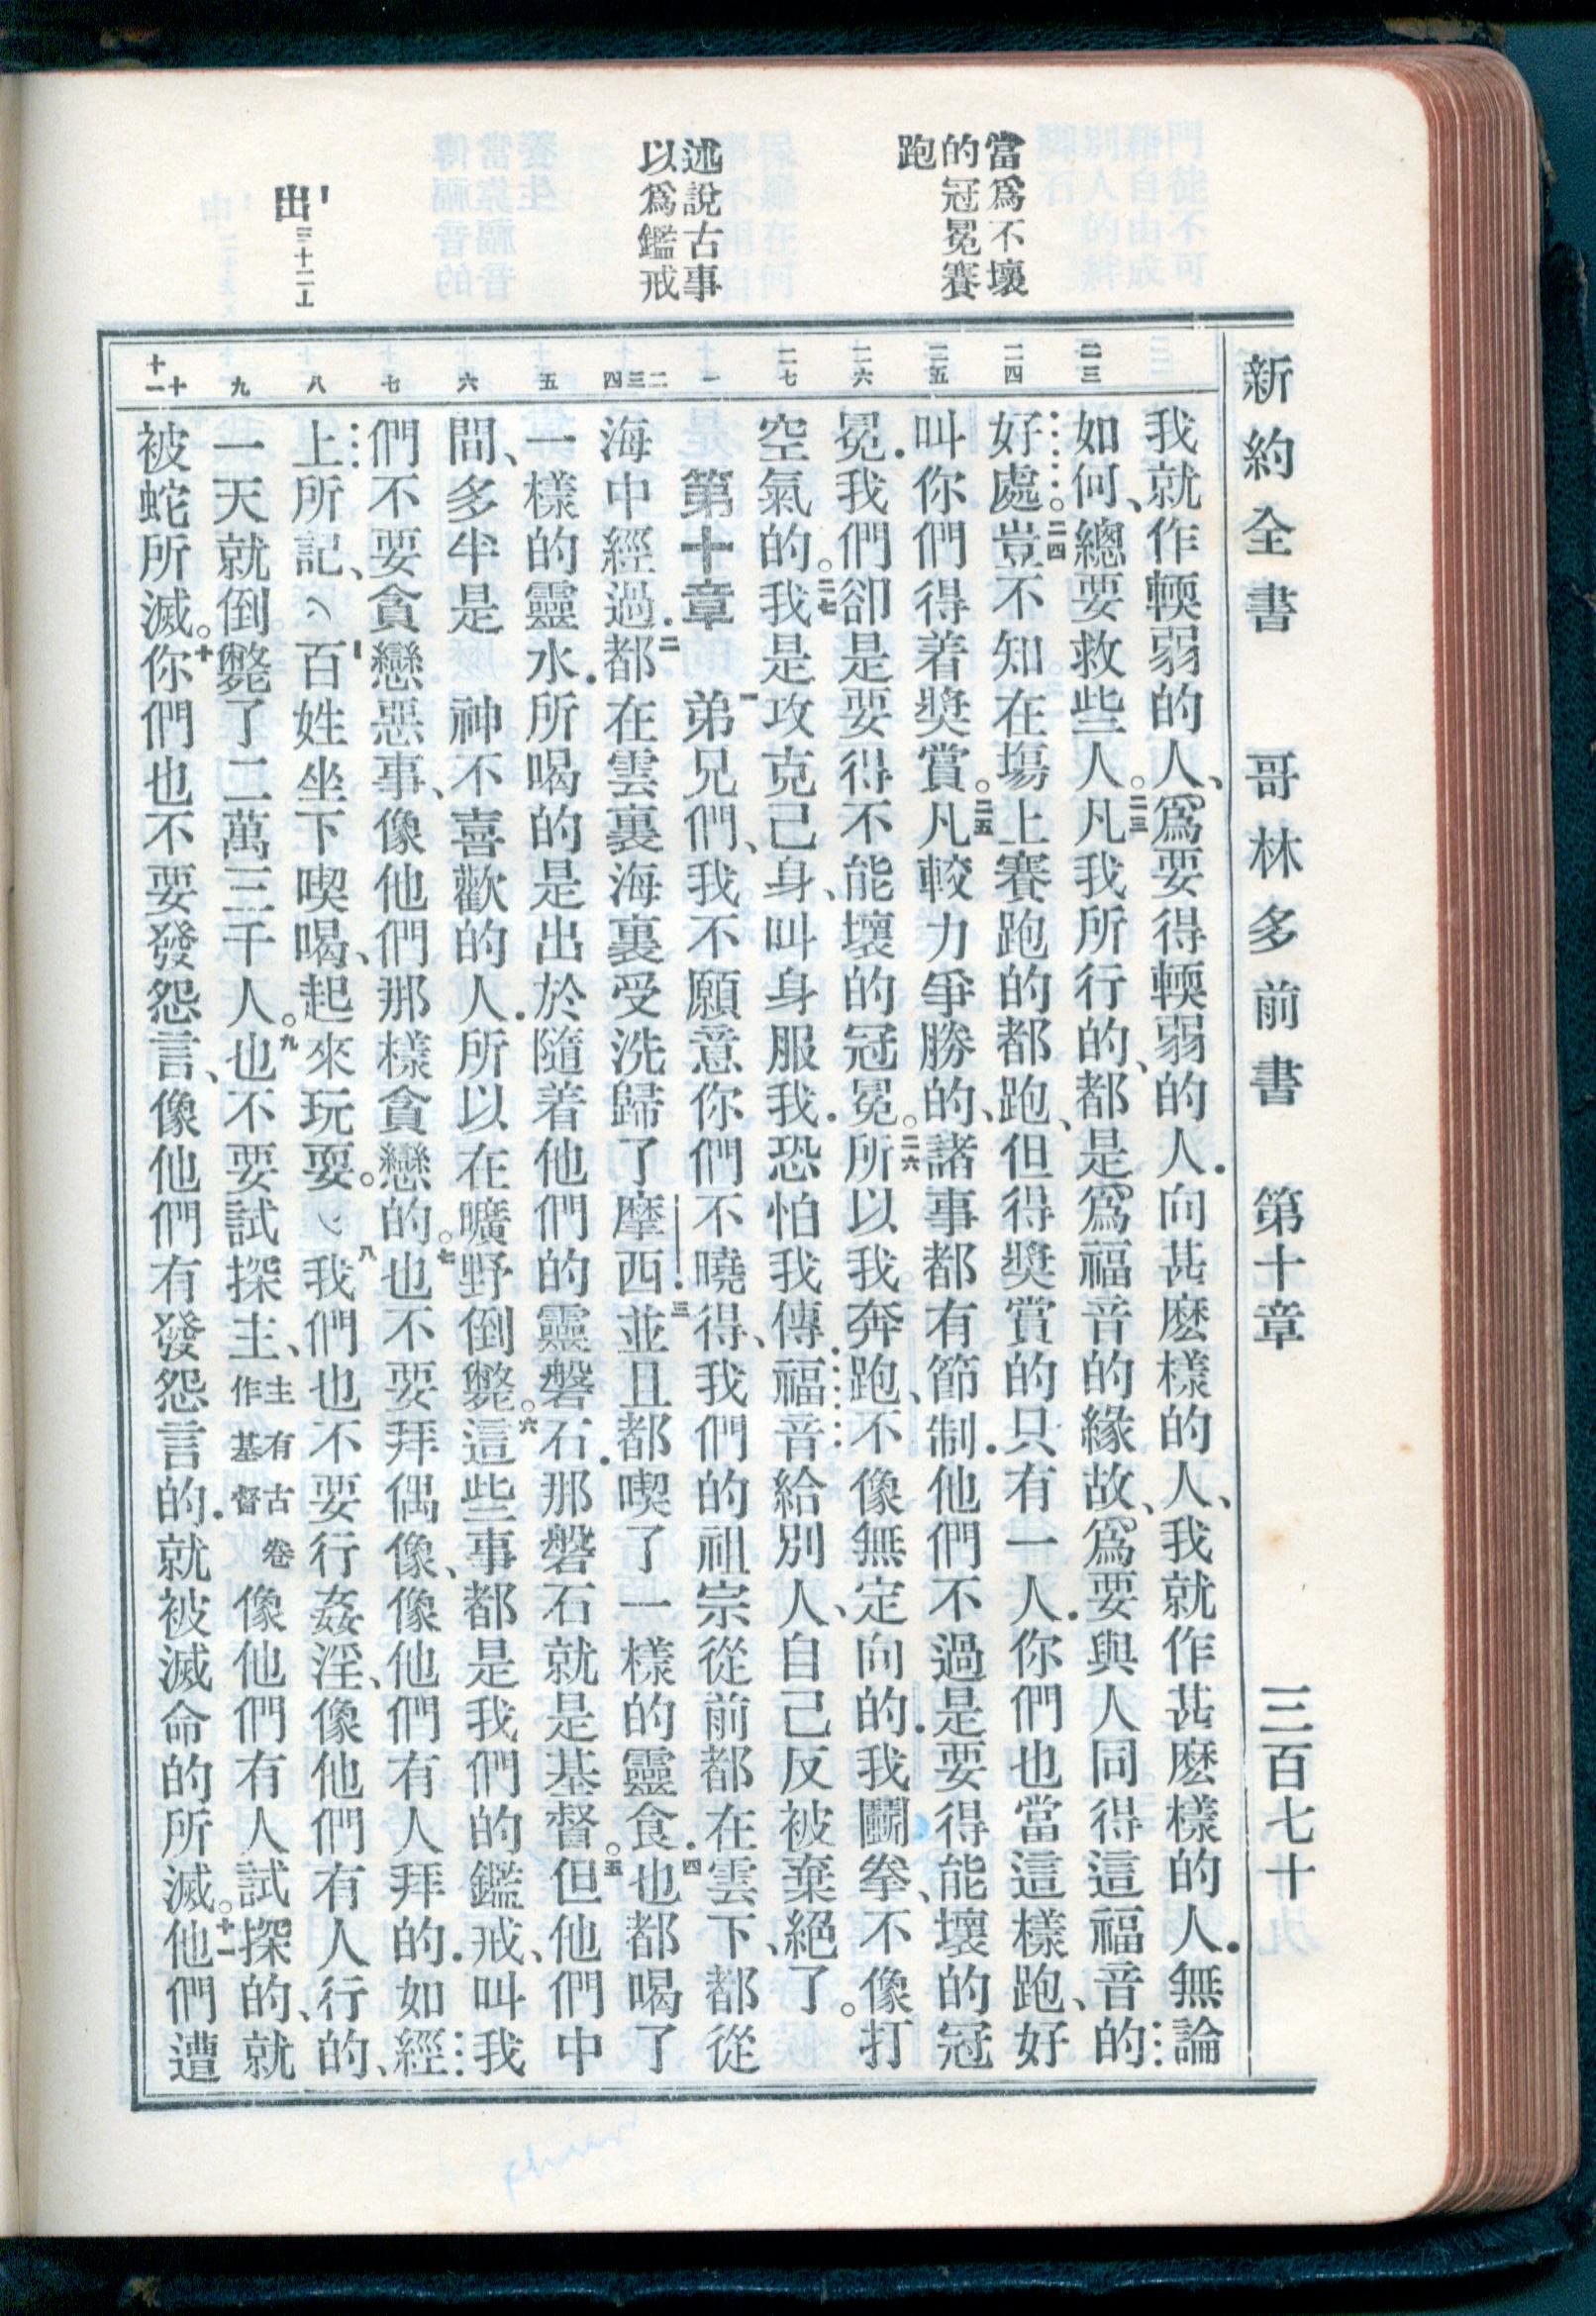 新約全書　哥林多前書　第十章　三百七十
當爲不壞
的冠冕賽
跑
述說古事
以爲鑑戒
出三十二
二三
二四
二五
二六
二七
一
二三四
五
六
七
八
九
十十一
我就作輭弱的人、爲要得輭弱的人．向甚麽樣的人、我就作甚麽樣的人．無論
如何、總要救些人。二三凡我所行的、都是爲福音的緣故、爲要與人同得這福音的
好處。二四豈不知在塲上賽跑的都跑、但得獎賞的只有一人．你們也當這樣跑、好
叫你們得着獎賞。二五凡較力爭勝的、諸事都有節制．他們不過是要得能壞的冠
冕．我們卻是要得不能壞的冠冕。二六所以我奔跑、不像無定向的．我鬬拳、不像打
空氣的。二七我是攻克己身、叫身服我．恐怕我傳福音給別人、自己反被棄絕了。
第十章　一弟兄們、我不願意你們不曉得、我們的祖宗從前都在雲下、都從
海中經過．二都在雲裏海裏受洗歸了摩西．三並且都喫了一樣的靈食．四也都喝了
一樣的靈水．所喝的是出於隨着他們的靈磐石．那磐石就是基督。五但他們中
間、多半是　神不喜歡的人．所以在曠野倒斃。六這些事都是我們的鑑戒、叫我
們不要貪戀惡事、像他們那樣貪戀的。七也不要拜偶像、像他們有人拜的．如經
上所記、（百姓坐下喫喝、起來玩耍。）八我們也不要行姦淫、像他們有人行的、
一天就倒斃了二萬三千人。九也不要試探主、主有古卷作基督像他們有人試探的、就
被蛇所滅。十你們也不要發怨言、像他們有發怨言的．就被滅命的所滅。十一他們遭